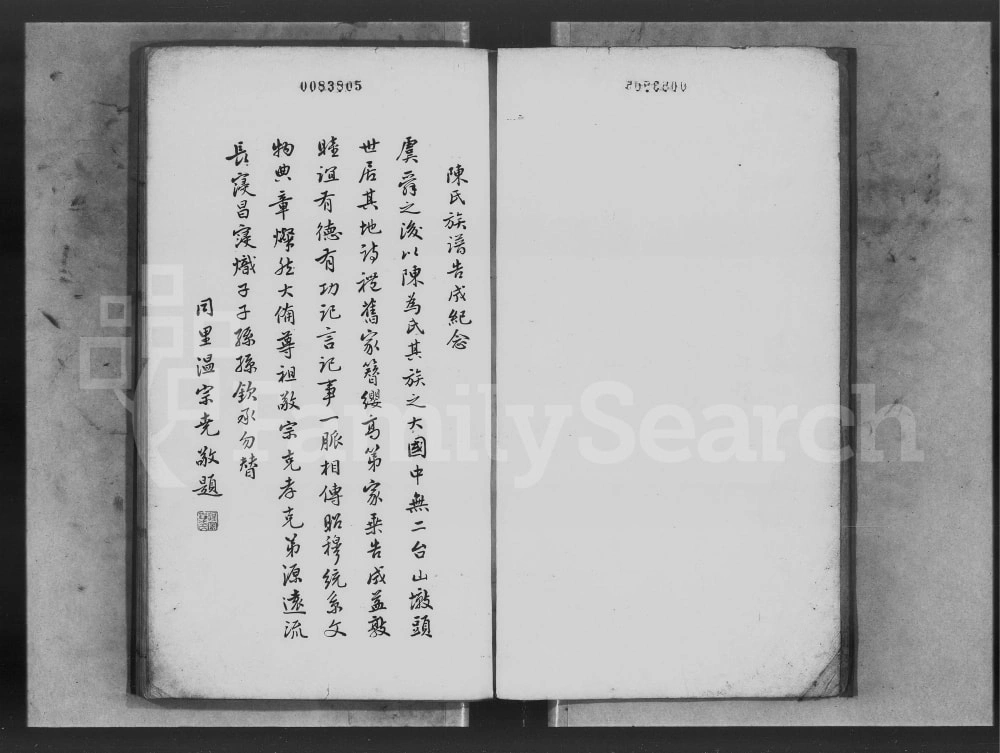 0083905
陳氏族譜告成紀念
虞舜之後以陳為氏其族之大國中無二台山墩頭
世居其地詩禮舊家簪纓高第家乘告成益敦
睦誼有德有功記言記事一脈相傳昭穆統系文
物典章燦然大備尊祖敬宗克孝克弟源遠流
長寖昌寖熾子子孫孫欽承勿替
同里温宗尭敬題
FamilySearch